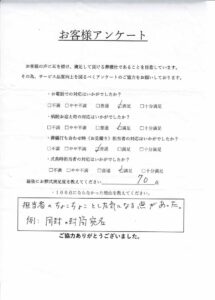 お客様アンケート
お客様の声に耳を傾け、満足して頂ける葬儀社であることを目指しています。
その為、サービス品質向上を図るべくアンケートのご協力をお願いしております。
・お電話での対応はいかがでしたか?
□不満 □やや不満 □普通 □満足 □十分満足
・病院お迎え時の対応はいかがでしたか?
□不満 □やや不満 □普通 □満足 □十分満足
・葬儀打ち合わせ時(お見積り)担当者の対応はいかがでしたか?
□不満 □やや不満 □普通 □満足 □十分満足
・式典時担当者の対応はいかがでしたか?
□不満 □やや不満 □普通 □満足 □十分満足
最後にお葬式満足度を教えてください 70 点
・100点にならなかった理由を教えてください。
担当者のちょこちょことした気になる点があった。
例:同封の封筒宛名
ご協力ありがとうございました。